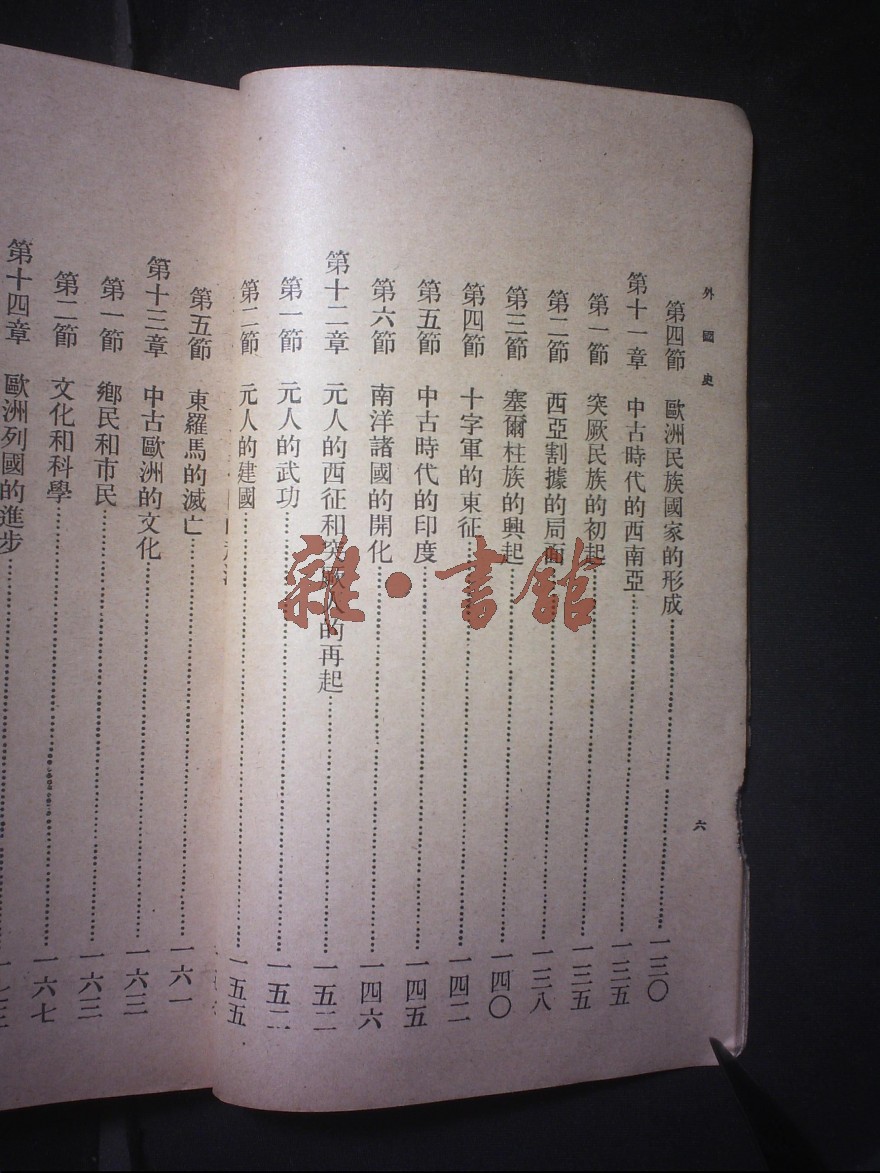 外國史
六
第四節 歐洲民族國家的形成……一三〇
第十一章 中古時代的西南亞……一三五
第一節 突厥民族的初起……一三五
第二節 西亞割據的局面……一三八
第三節 塞爾柱族的興起……一四〇
第四節 十字軍的東征……一四二
第五節 中古時代的印度……一四五
第六節 南洋諸國的開化……一四六
第十二章 元人的西征和突厥人的再起……一五二
第一節 元人的武功……一五二
第二節 元人的建國……一五五
第五節 東羅馬的滅亡……一六一
第十三章 中古歐洲的文化……一六三
第一節 鄉民和市民……一六三
第二節 文化和科學……一六七
第十四章 歐洲列國的進步……
雜·書館